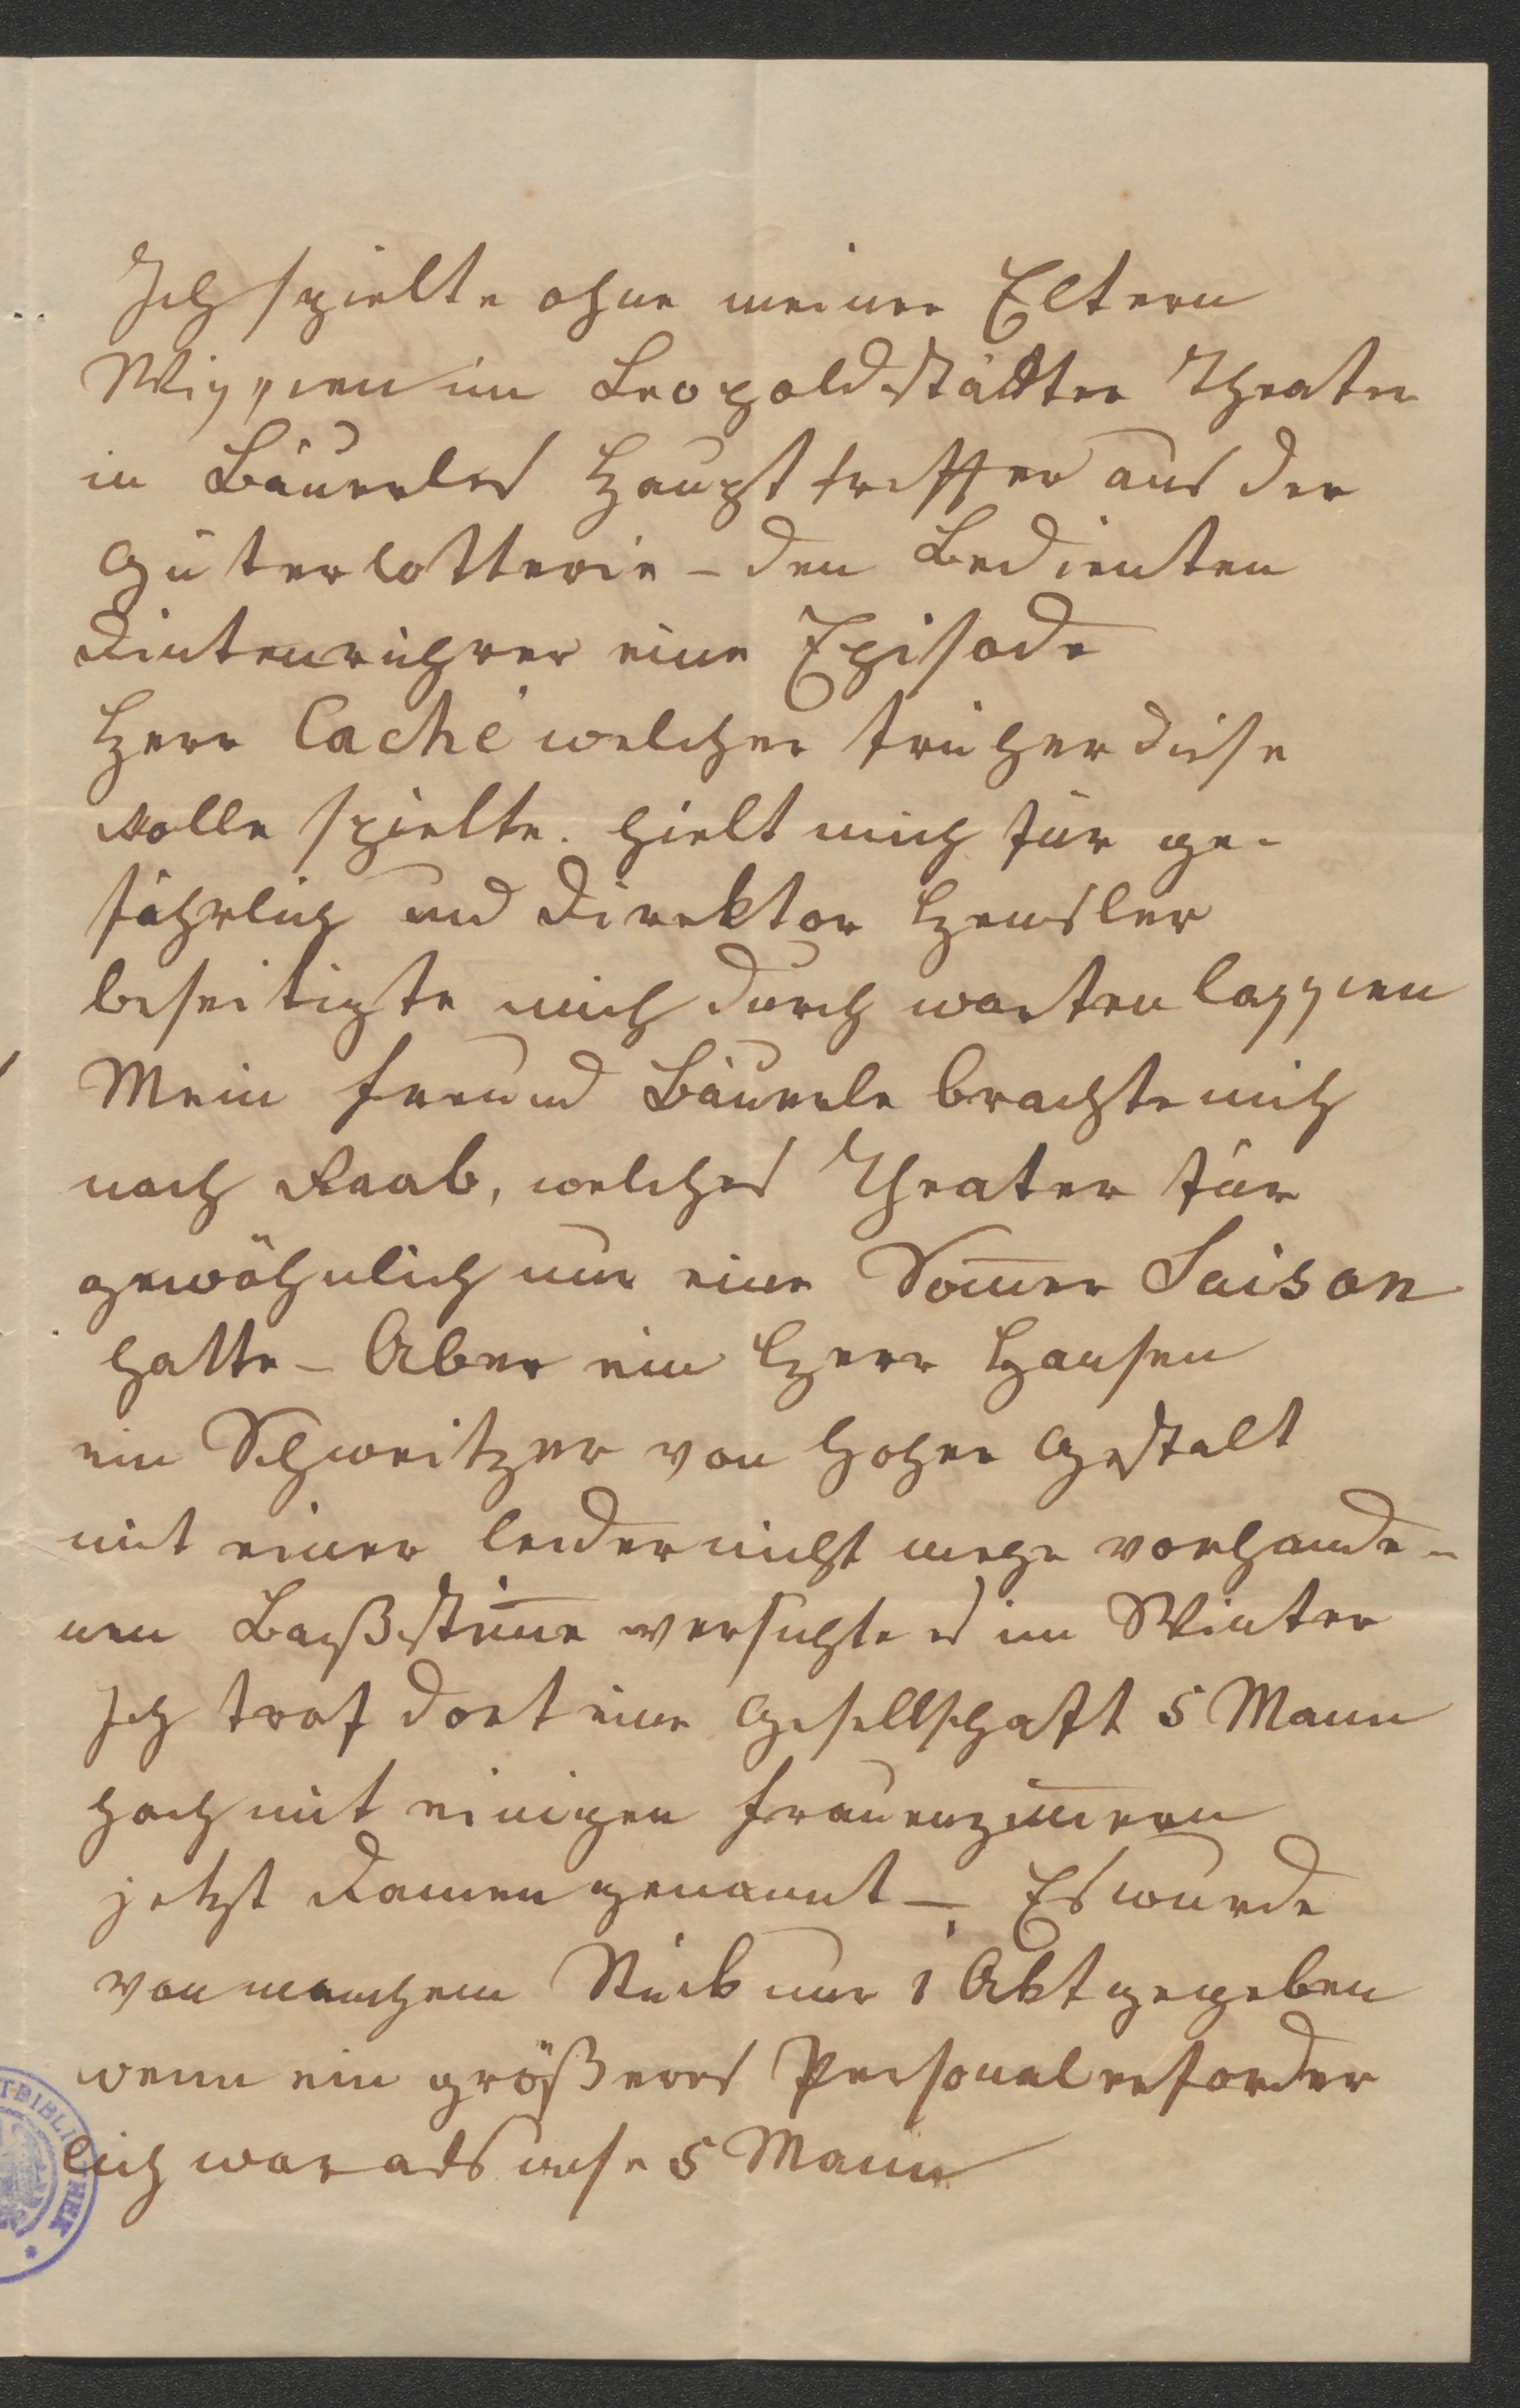 Ich spielte ohne meiner Eltern
Wissen im Leopoldstädter Theater
in Bäuerles Haupttreffer aus der
Güterlotterie – den Bedienten
Dintenrührer eine Episode
Herr Caché welcher früher diese
Rolle spielte. hielt mich für ge-
fährlich und Direktor Hensler
beseitigte mich durch warten lassen
Mein Freund Bäuerle brachte mich
nach Raab, welches Theater für
gewöhnlich nur eine Som̅er Saison
hatte – Aber ein Herr Hansen
ein Schweitzer von hoher Gestalt
mit einer leider nicht mehr vorhande-
nen Baßstim̅e versuchte es im Winter
Ich traf dort eine Gesellschaft 5 Mann
hoch mit einigen Frauenzim̅ern
jetzt Damen genannt – Es wurde
von manchem Stück nur 1 Akt gegeben
wenn ein größeres Personal erforder
lich war als unse 5 Mann
TBIBLIOTHEK